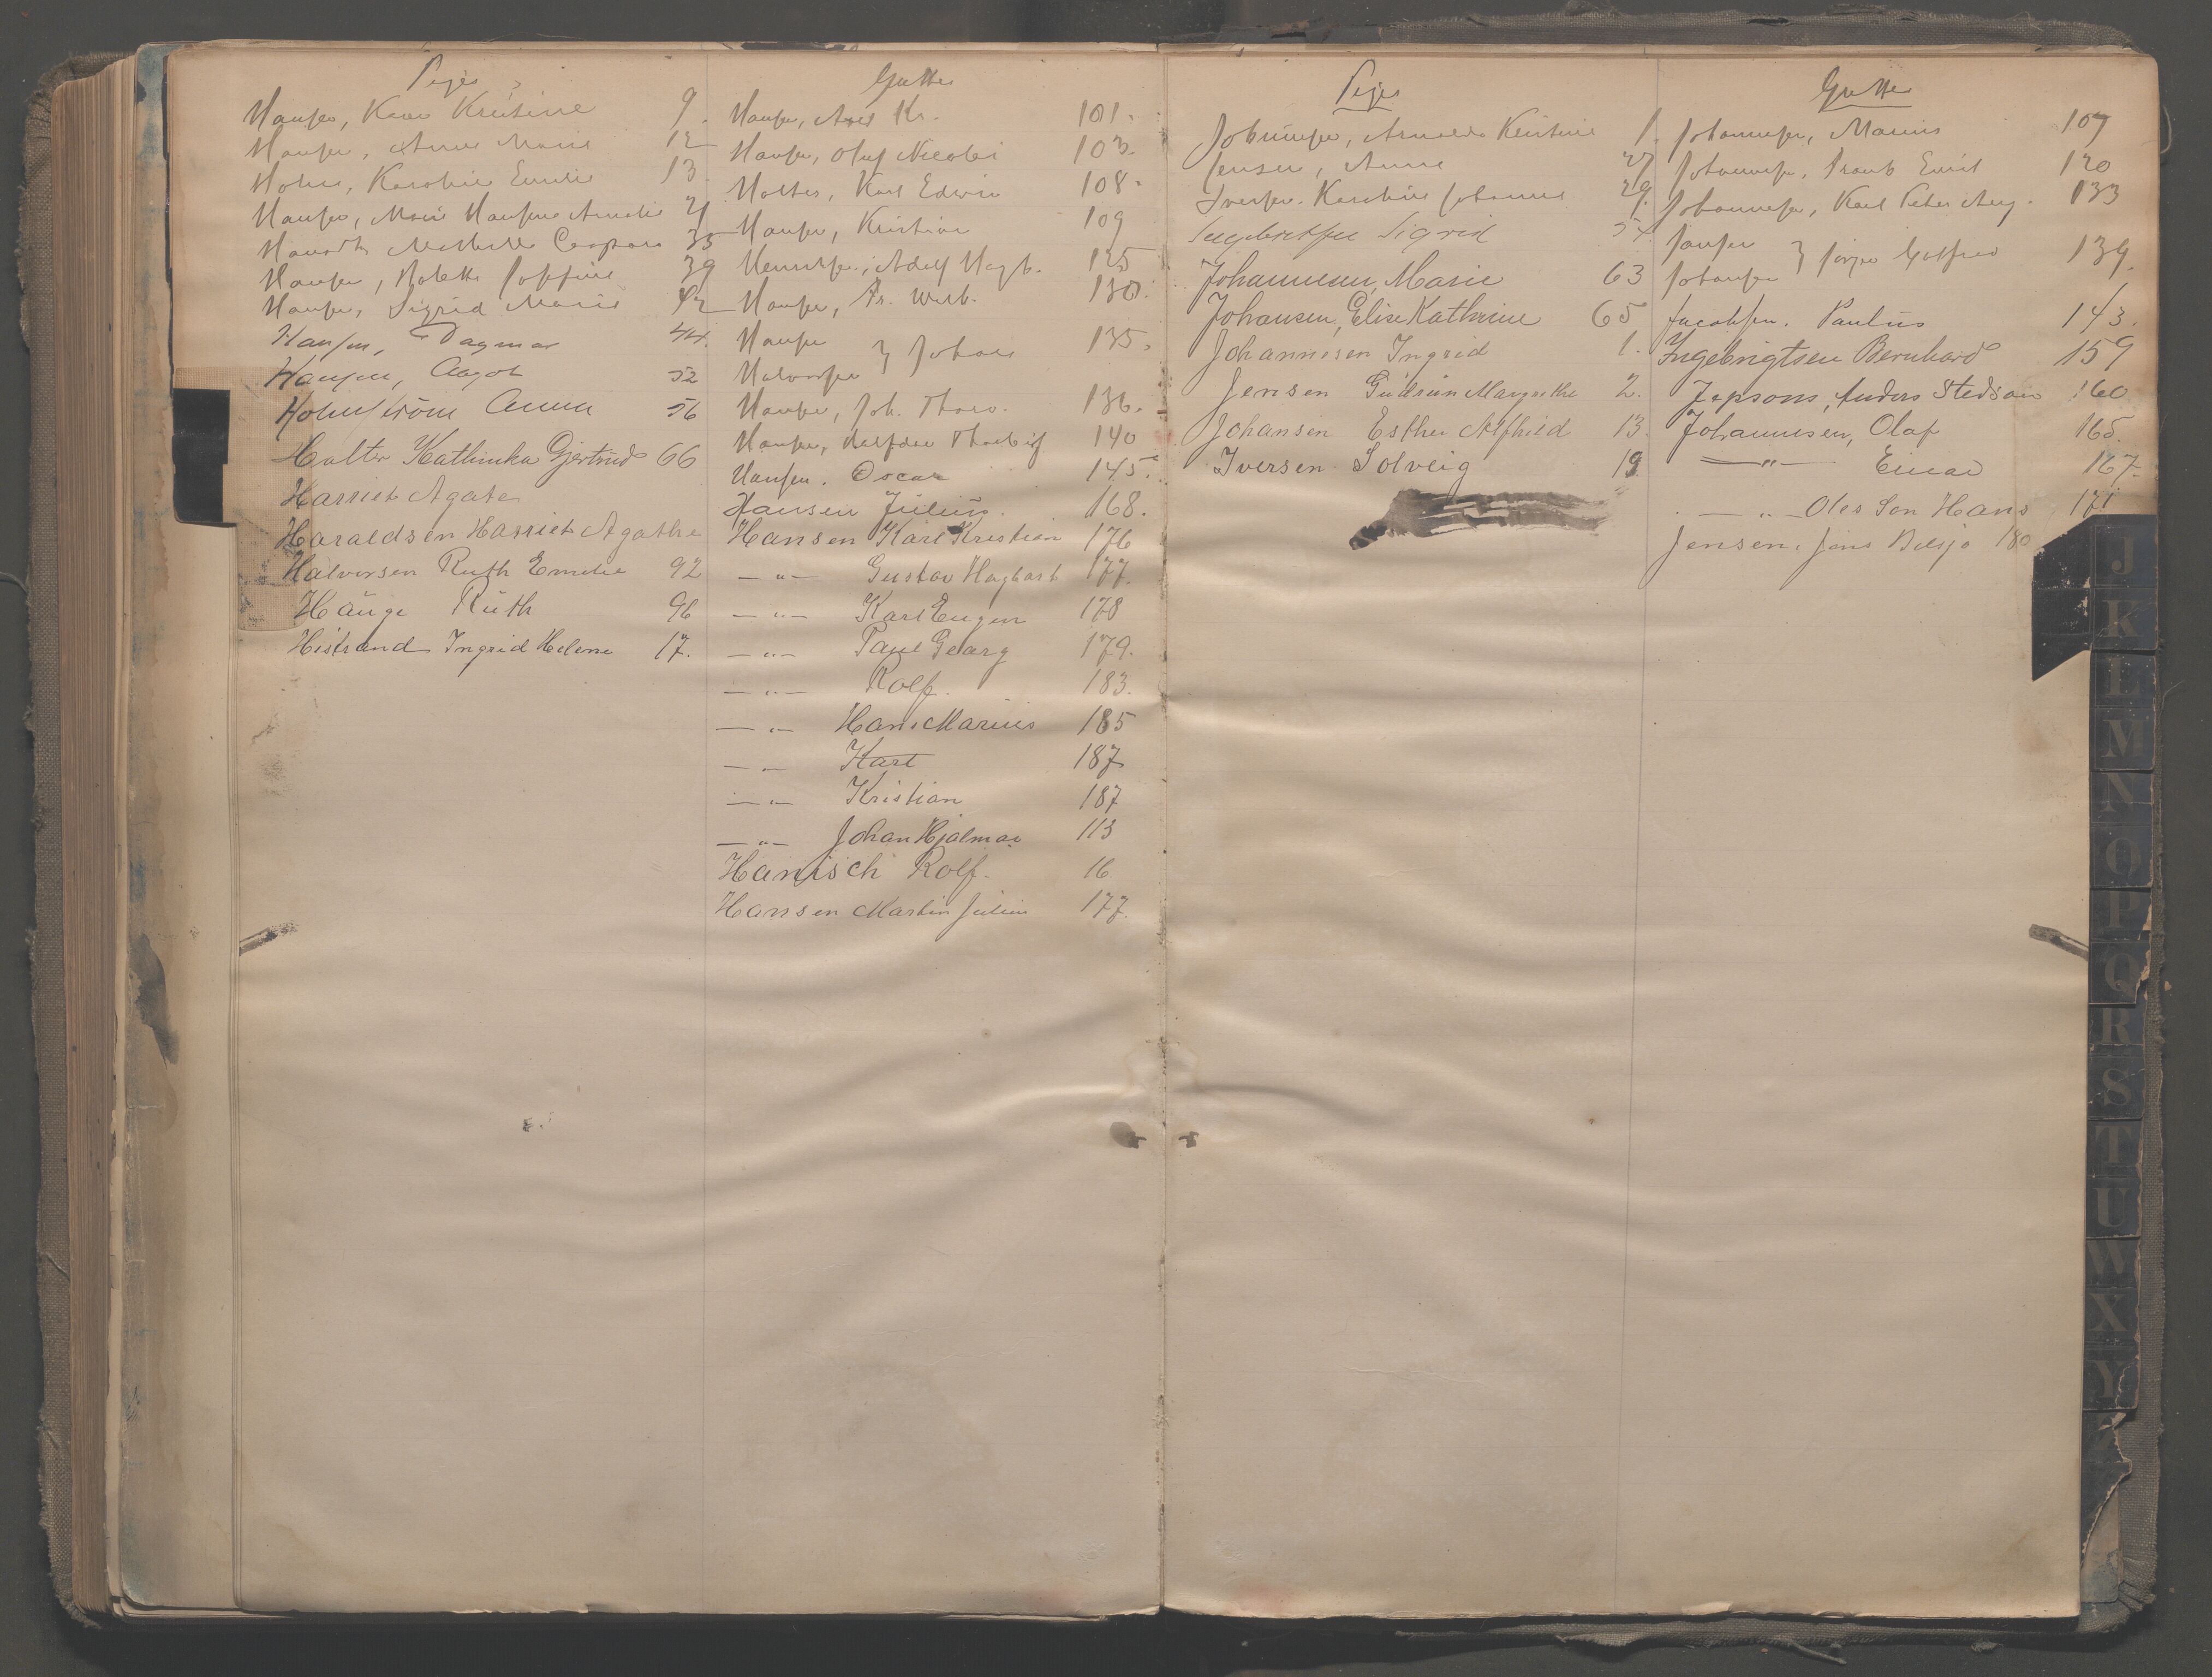 Piger
Hansen, Kristine 9.
Hansen, Anna Marie 12
Holm, Karoline Emilie 13.
Hansen, Marie Amalie 21
Mathilde 35
Hansen, 39
Hansen, Sigrid Marie 42
Hansen, Dagmar 44.
Hansen, Aagot 52
Holmström Anna 56
Halter Kathinka Gjertrud 66
Harriet Agate
Haraldsen Harriet Agathe
Halvorsen Ruth Emilie 92
Hauge Ruth 96
Histrand Ingrid Helene 17.
Gutter
Hansen, Axel Kr. 101.
Hansen, Oluf Nicolai 103.
Holter, Karl Edvin 108.
Hansen, Kristian 109
Adolf 125
Hansen, Fr. Wilh. 130.
Hansen
Halvorsen } Johan 135.
Hansen, Joh. 136.
Hansen, 140
Hansen. Oscar 145.
Hansen Julius. 168.
Hansen Karl Kristian 176
—„— Gustav Hagbart 177.
—„— Karl Eugen 178
—„— Paul Georg 179.
—„— Rolf. 183.
—„— Hans Marius 185
—„— Karl 187
—„— Kristian 187
—„— Johan Hjalmar 113
Hanisch Rolf. 16
Hansen Martin Julius 177.
Piger
Kristine 1.
Jensen, Anna 27
Iversen. Karoline Johanne 29.
Ingebretsen Sigrid 54.
Johannesen, Marie 63
Johansen, Elise Kathrine 65
Johannesen Ingrid 1.
Jensen Gudrun Margrethe 2.
Johansen Esther Alfhild 13.
Iversen Solveig 19
Gutter
Johannesen, Marius 107
Johannesen, Emil 120
Johannesen, Karl Peter Aug. 133
Jansen
Johansen } 139.
Jacobsen. Paulus 143.
Ingebrigtsen Bernhard 159
Jepsons, Anders Stedsøn 160
Johannesen, Olaf 165.
—„— Einar 167.
—„— Oles Søn Hans 171
Jensen, Jens 180
J
K
L
M
N
O
P
Q
R
S
T
U
W
X
Y